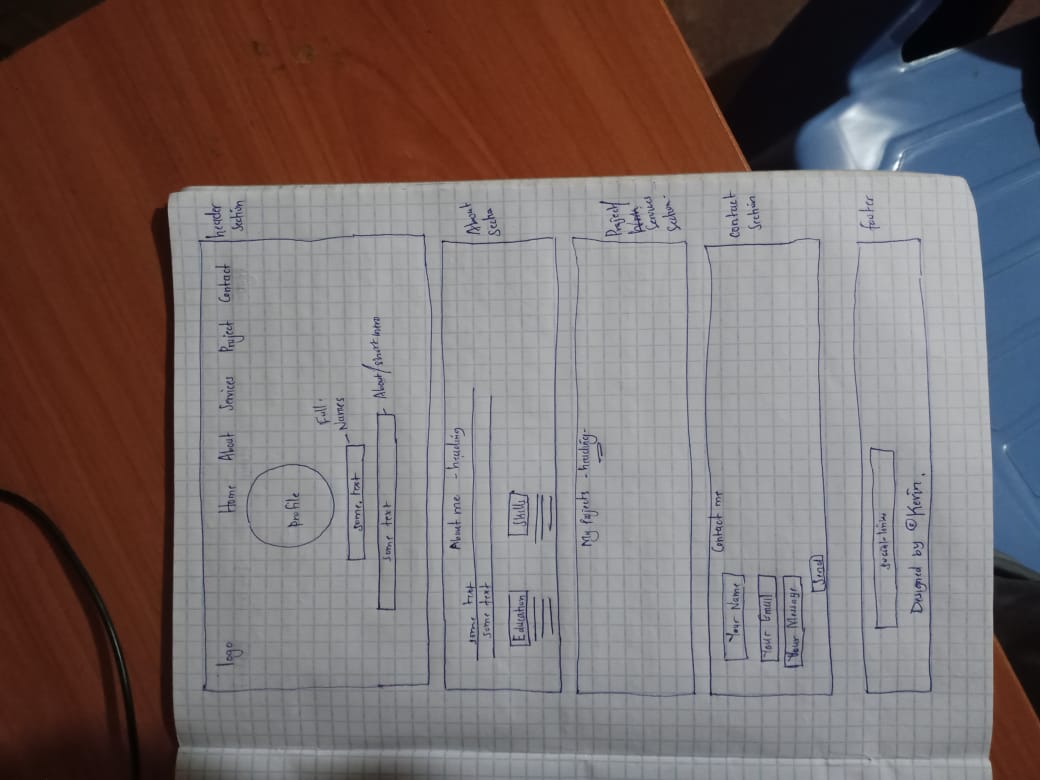 header
section
logo Home About Services Project Contact
Profile
some text
Full
Names
some text
About/short intro
About
Sectio
About me - heading
some text
some text
Education
Skills
Project/
Services
Section
My Pojects - heading-
contact
section
Contact me
Your Name
Your Email
Your Message
Send
footer
social-links
Designed by @Kevin.